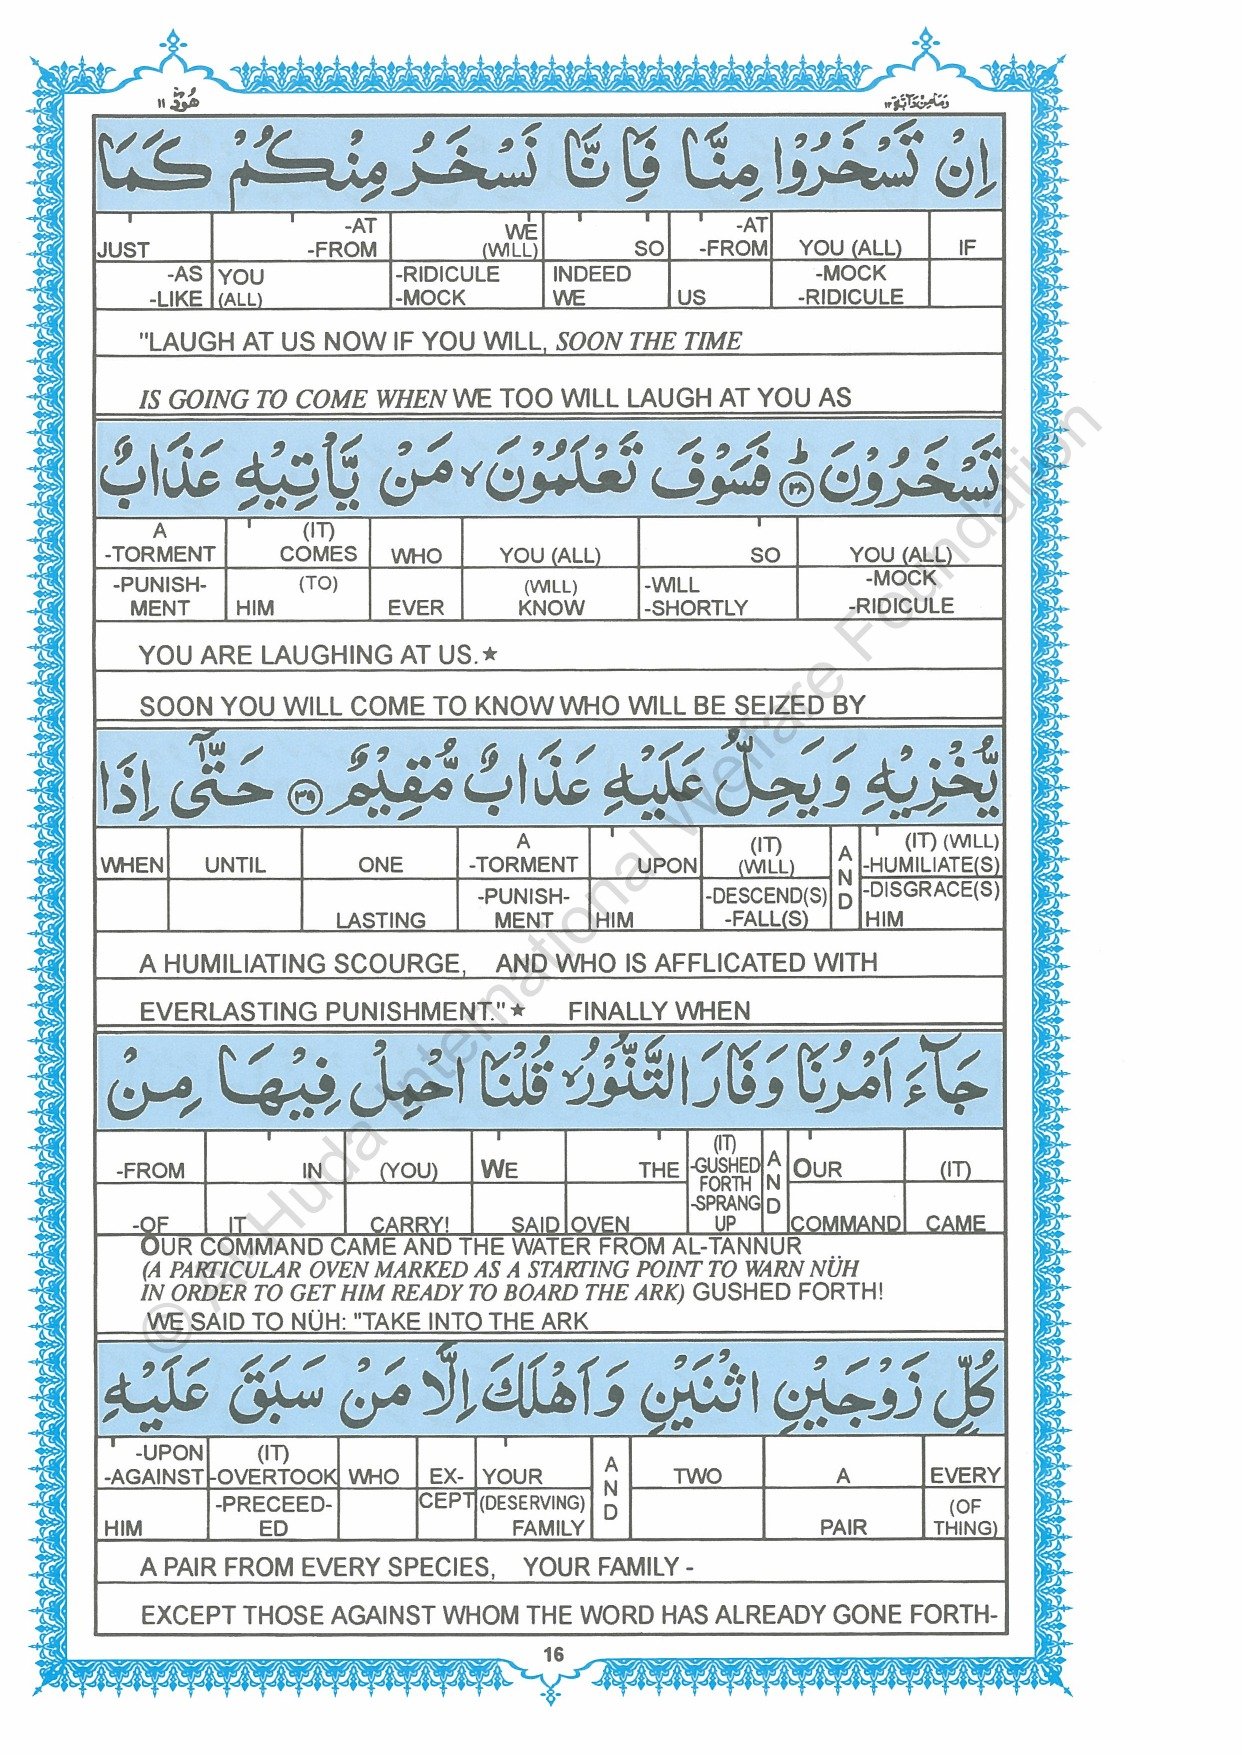 هُود ١١
وَمَامِنْ دَآبَّة ١٢
اِنْ تَسْخَرُوْا مِنَّا فَاِنَّا نَسْخَرُ مِنْكُمْ كَمَا
JUST -AT -FROM WE (WILL) SO -AT -FROM YOU (ALL) IF
-AS -LIKE YOU (ALL) -RIDICULE -MOCK INDEED WE US -MOCK -RIDICULE
"LAUGH AT US NOW IF YOU WILL, SOON THE TIME
IS GOING TO COME WHEN WE TOO WILL LAUGH AT YOU AS
تَسْخَرُوْنَ ؕ ۳۸ فَسَوْفَ تَعْلَمُوْنَ ۙ مَنْ يَّاْتِيْهِ عَذَابٌ
A -TORMENT (IT) COMES WHO YOU (ALL) SO YOU (ALL)
-PUNISH- MENT (TO) HIM EVER (WILL) KNOW -WILL -SHORTLY -MOCK -RIDICULE
YOU ARE LAUGHING AT US.★
SOON YOU WILL COME TO KNOW WHO WILL BE SEIZED BY
يُّخْزِيْهِ وَيَحِلُّ عَلَيْهِ عَذَابٌ مُّقِيْمٌ ۳۹ حَتّٰٓى اِذَا
WHEN UNTIL ONE A -TORMENT UPON (IT) (WILL) AND (IT) (WILL) -HUMILIATE(S)
LASTING -PUNISH- MENT HIM -DESCEND(S) -FALL(S) -DISGRACE(S) HIM
A HUMILIATING SCOURGE, AND WHO IS AFFLICATED WITH
EVERLASTING PUNISHMENT."★ FINALLY WHEN
جَآءَ اَمْرُنَا وَفَارَ التَّنُّوْرُ ۙ قُلْنَا احْمِلْ فِيْهَا مِنْ
-FROM IN (YOU) WE THE (IT) -GUSHED FORTH -SPRANG UP AND OUR (IT)
-OF IT CARRY! SAID OVEN COMMAND CAME
OUR COMMAND CAME AND THE WATER FROM AL-TANNUR
(A PARTICULAR OVEN MARKED AS A STARTING POINT TO WARN NÜH
IN ORDER TO GET HIM READY TO BOARD THE ARK) GUSHED FORTH!
WE SAID TO NÜH: "TAKE INTO THE ARK
كُلٍّ زَوْجَيْنِ اثْنَيْنِ وَاَهْلَكَ اِلَّا مَنْ سَبَقَ عَلَيْهِ
-UPON -AGAINST (IT) -OVERTOOK WHO EX- YOUR AND TWO A EVERY
HIM -PRECEED- ED CEPT (DESERVING) FAMILY PAIR (OF THING)
A PAIR FROM EVERY SPECIES, YOUR FAMILY -
EXCEPT THOSE AGAINST WHOM THE WORD HAS ALREADY GONE FORTH-
16
© Al-Huda International Welfare Foundation